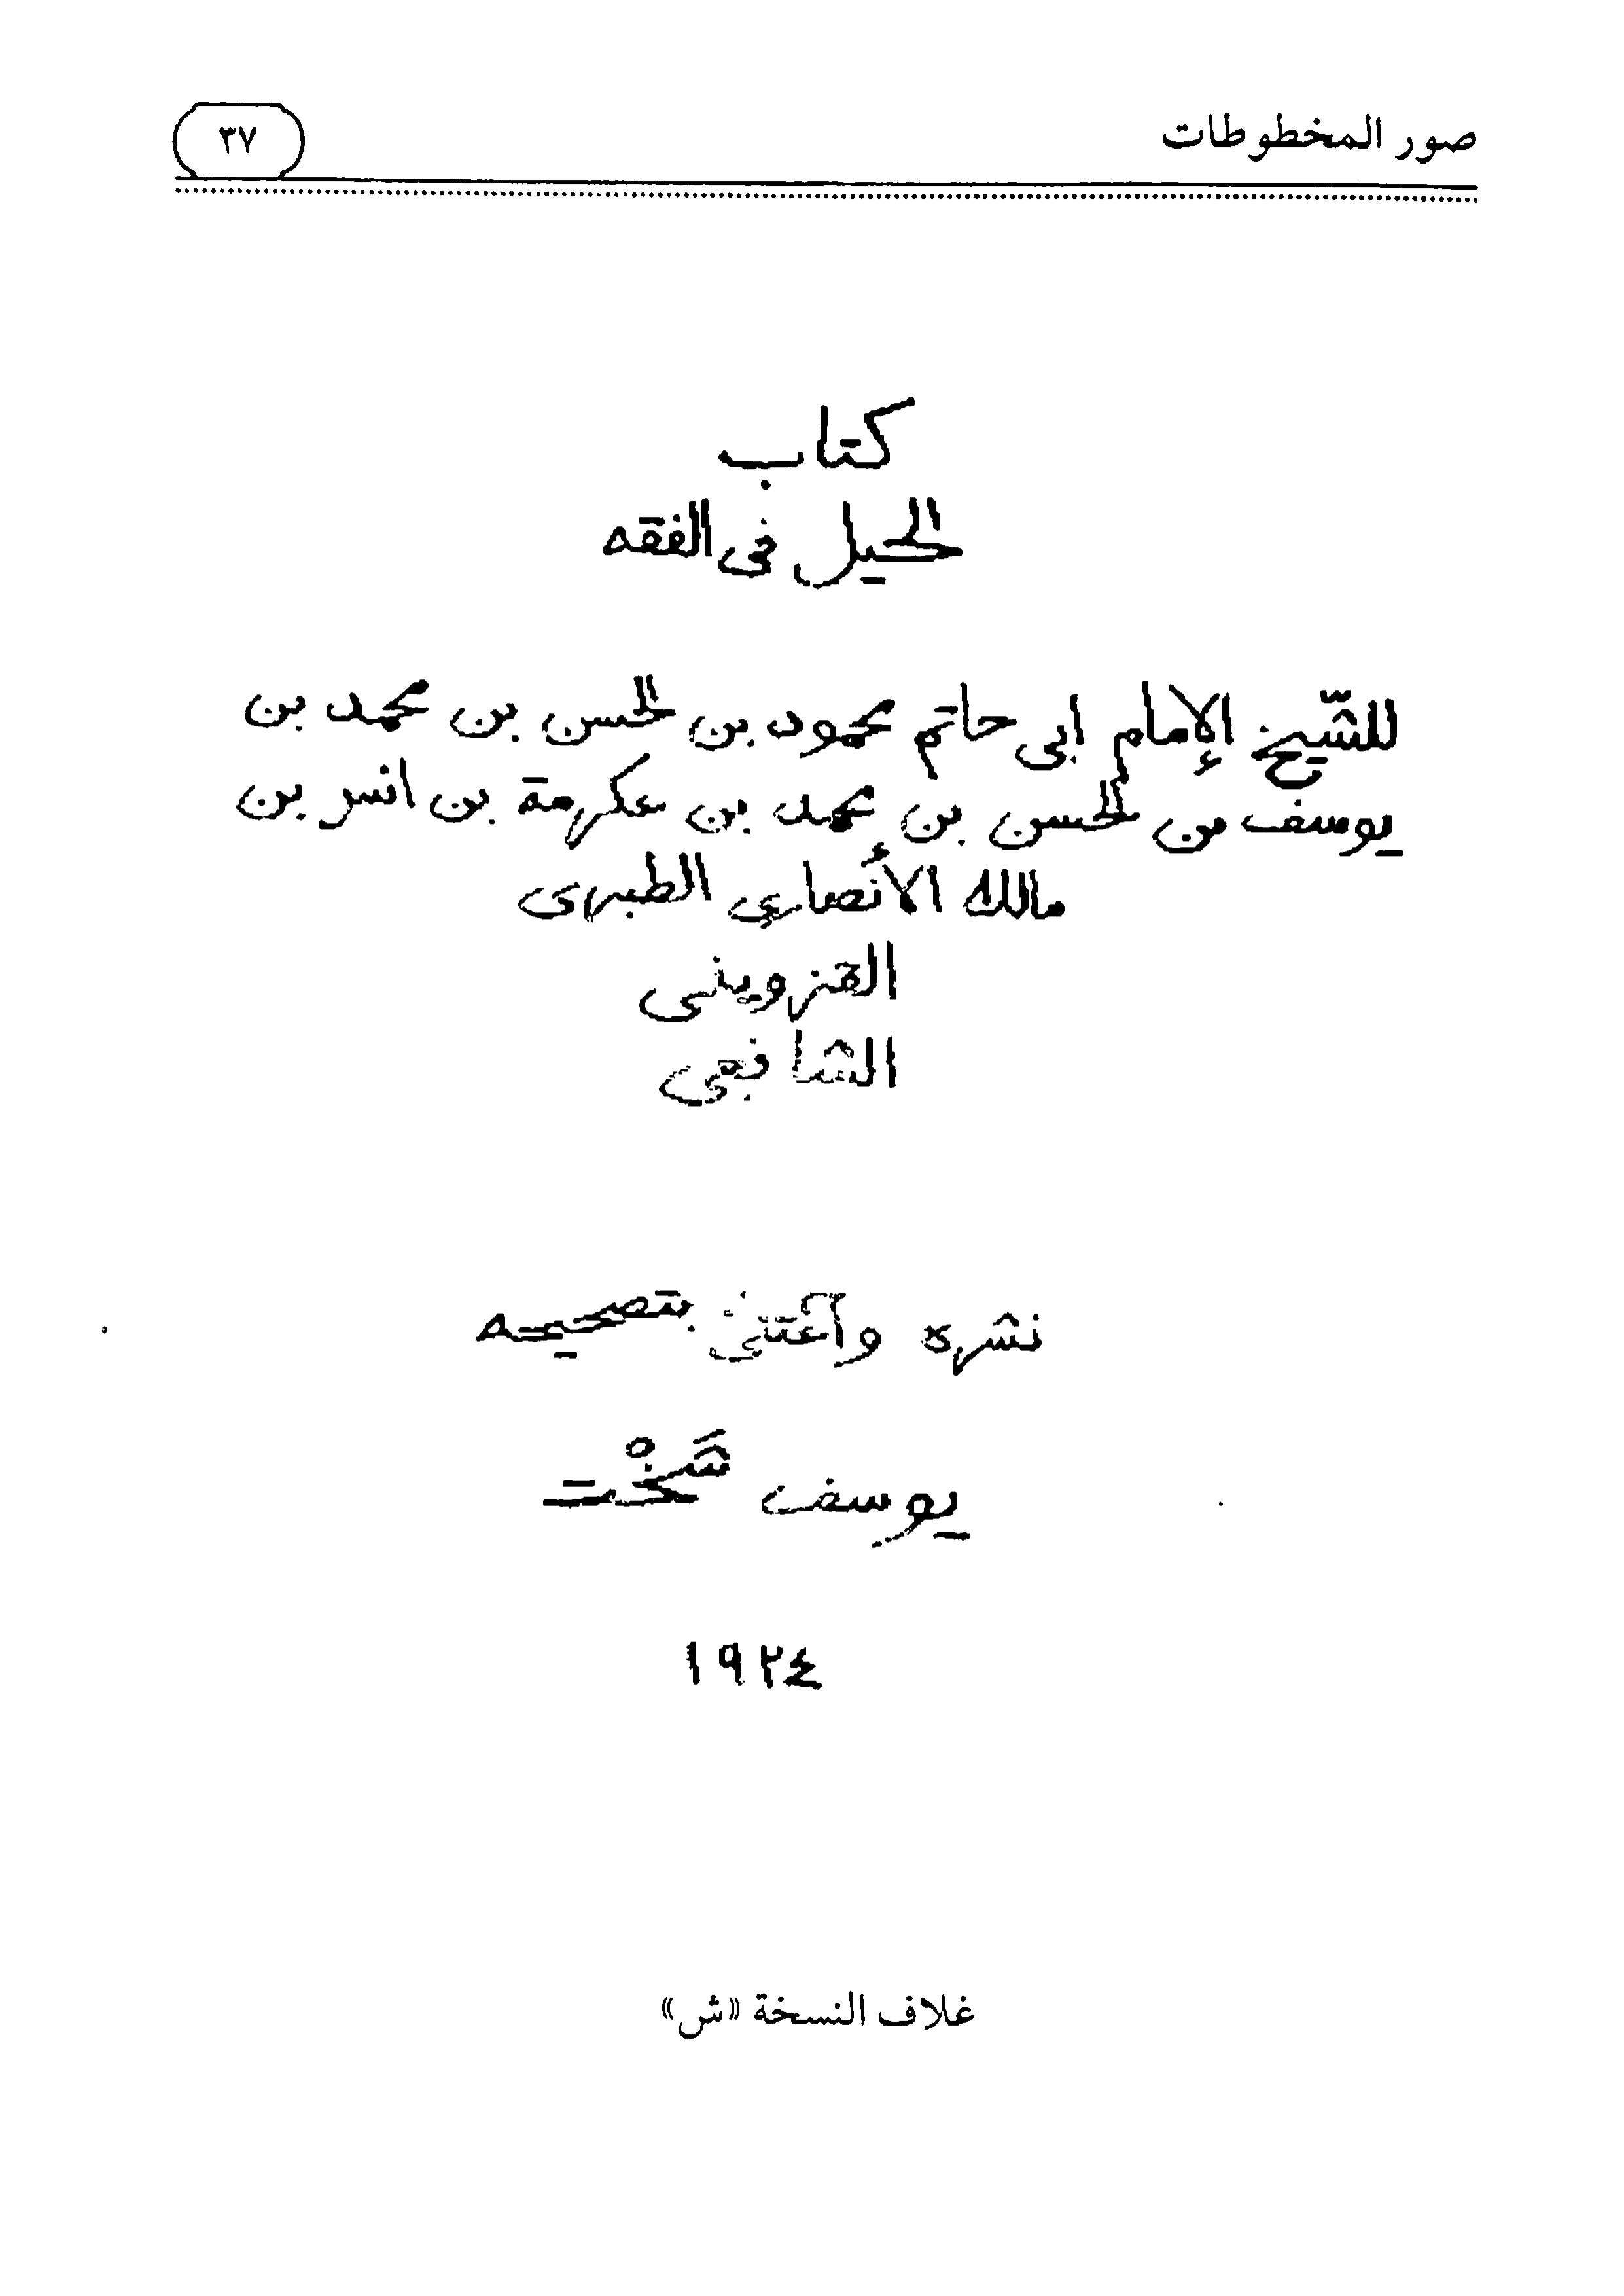 صور المخطوطات
٣٧
كتاب
الحيل في الفقه
للشّيخ الإمام ابى حاتم محمود بن الحسن بن محمد بن
يوسف بن الحسن بن محمد بن عكرمة بن انس بن
مالك الأنصاري الطبرى
القزوينى
الشافعى
نشره وآعتنى بتصحيحه
يوسف شَخْت
١٩٢٤
غلاف النسخة «ش»